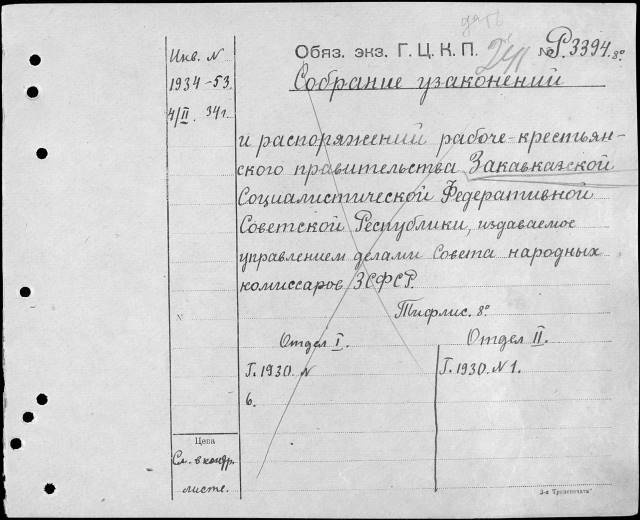 Инв. N
1934-53.
4/II. 34г.
Обяз. экз. Г. Ц. К. П.
№ Р.3394. 8º
Собрание узаконений
и распоряжений рабоче-крестьян-
ского правительства Закавказской
Социалистической Федеративной
Советской Республики, издаваемое
управлением делами Совета народных
комиссаров ЗСФСР.
Тифлис. 8º
№
Отдел I.
Г. 1930. N
6.
Отдел II.
Г. 1930. N 1.
Цена
См. в контр.
листе.
3-я